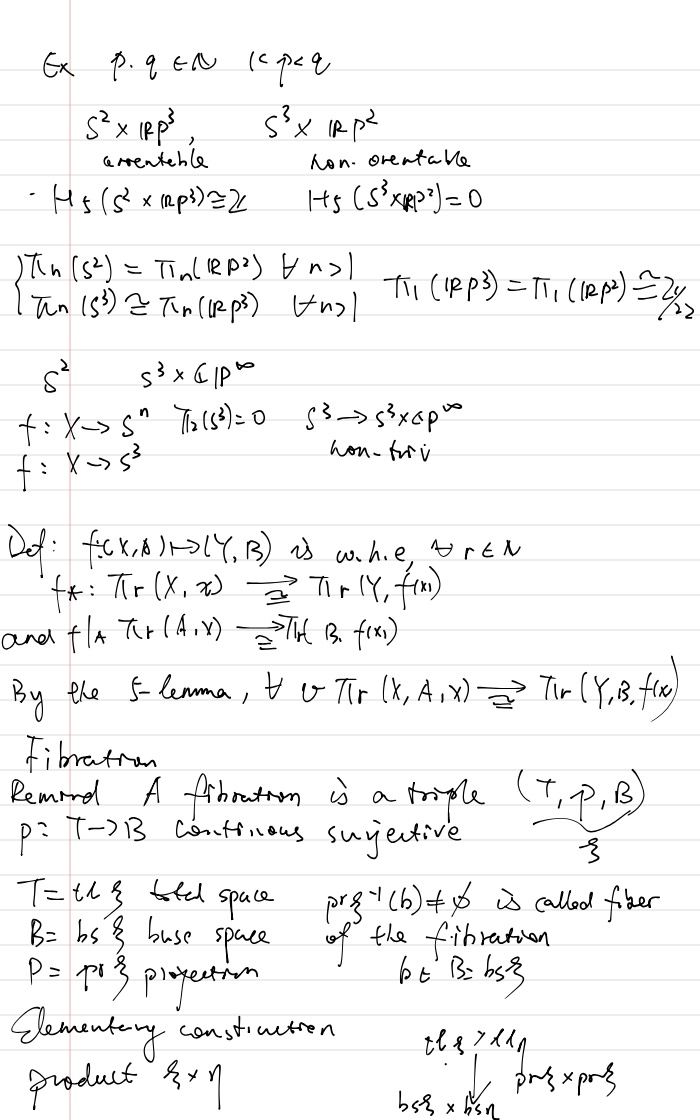 Ex p. q ∈ N 1<p<q
S² × RP³, S³ × RP²
orientable non-orientable
- H₅(S² × RP³) ≅ Z H₅(S³×RP²) = 0
{ πn(S²) = πn(RP²) ∀ n>1 π₁(RP³) = π₁(RP²) ≅ Z/2Z
πn(S³) ≅ πn(RP³) ∀n>1
S² S³ × CP^∞
f: X → Sⁿ π₂(S³) = 0 S³ → S³×CP^∞
f: X → S³ non-triv
Def: f:(X,A) ↦ (Y,B) is w.h.e, ∀ r ∈ N
f*: πr(X, x) →≅ πr(Y, f(x))
and f|A πr(A, x) →≅ πr(B, f(x))
By the 5-lemma, ∀ r πr(X, A, x) →≅ πr(Y, B, f(x))
Fibration
Remind A fibration is a triple (T, p, B)
p: T → B continous surjective ξ
T = tl ξ total space prξ⁻¹(b) ≠ ∅ is called fiber
B = bs ξ base space of the fibration
P = pr ξ projection b ∈ B = bsξ
Elementary construction
tl ξ × tl η
product ξ × η ↓ prξ × prξ
bsξ × bsη